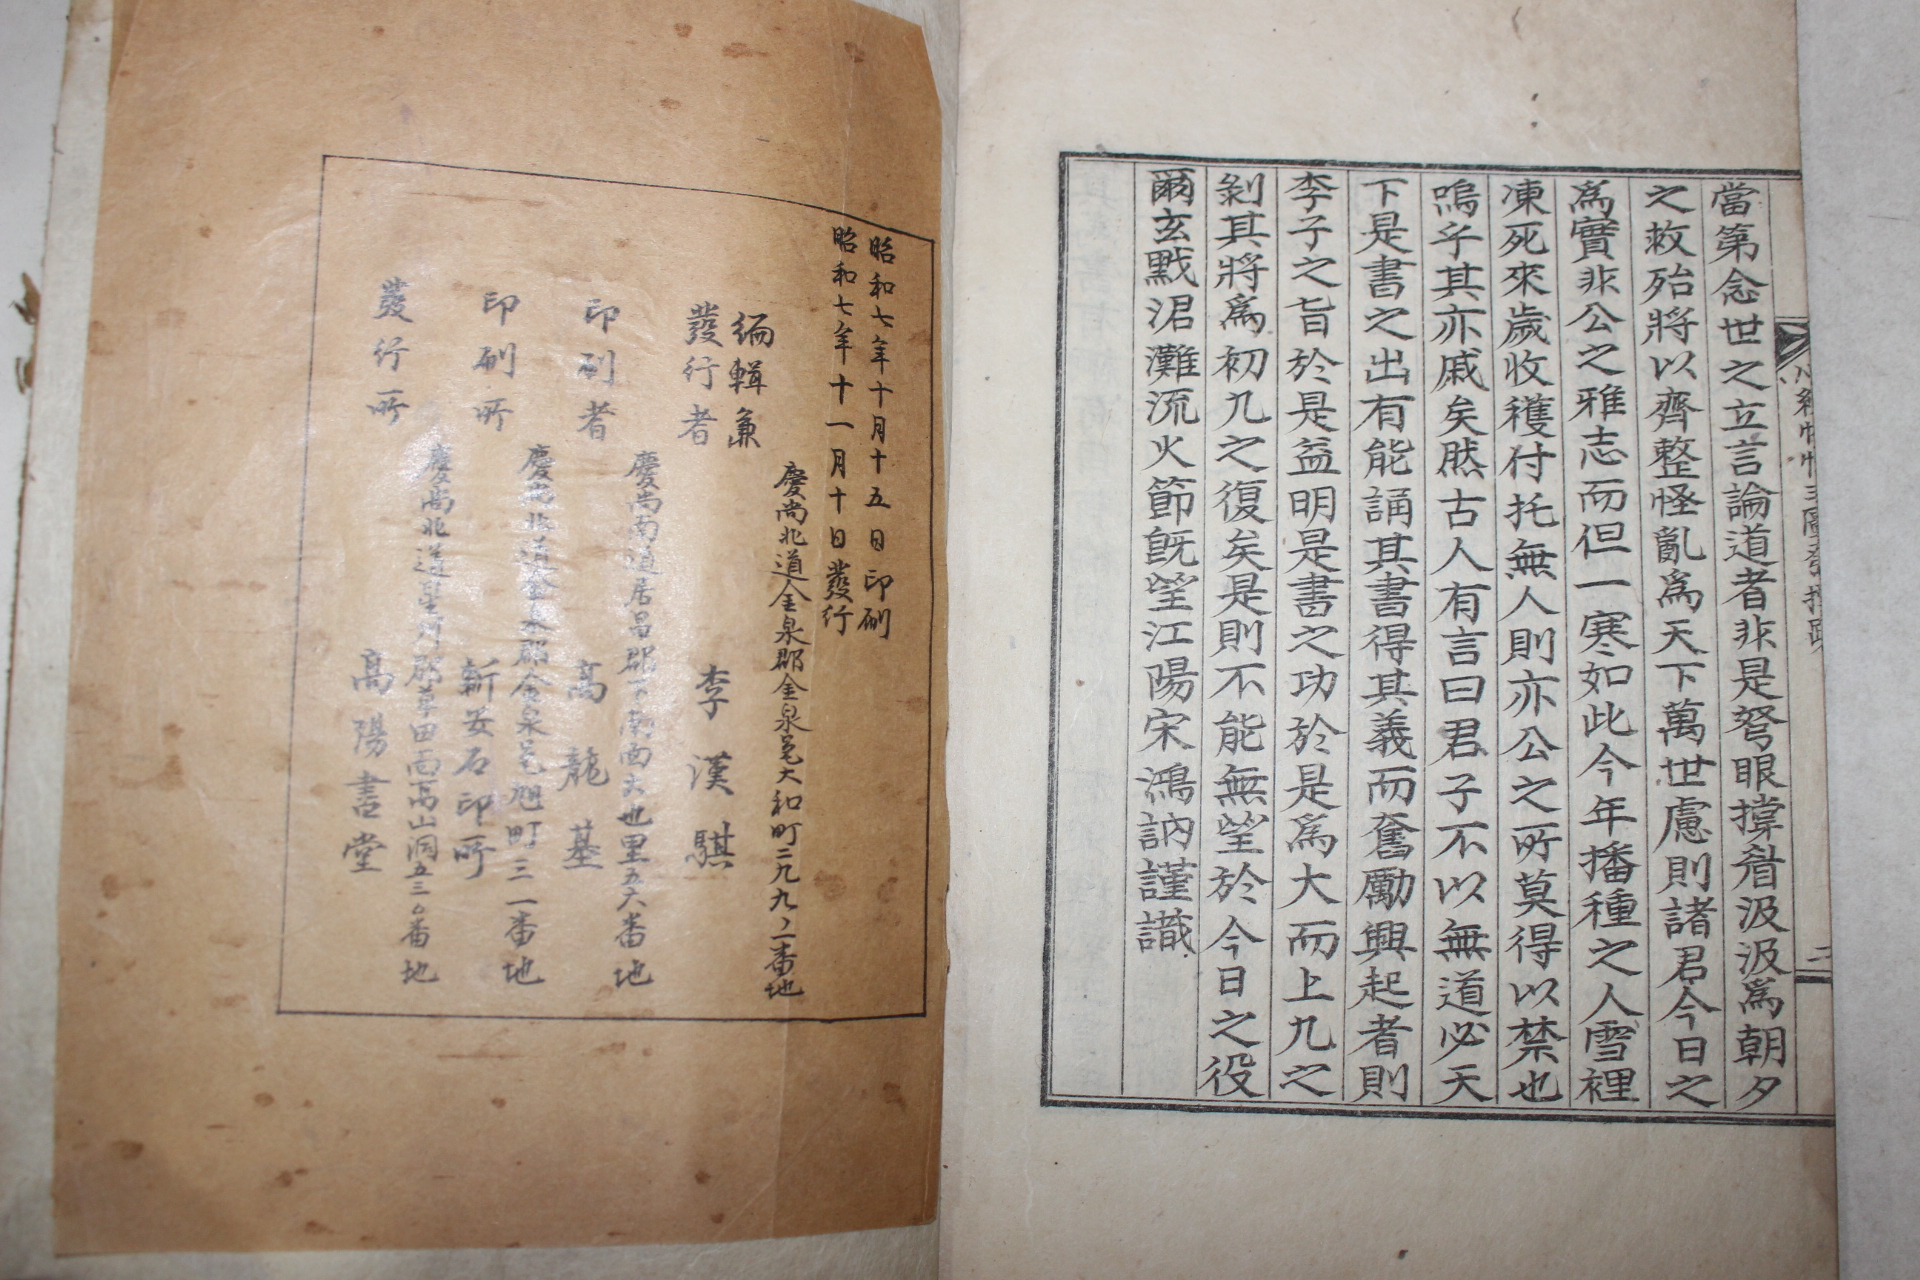 當第念世之立言論道者非是弩眼撑眉汲汲爲朝夕
之救殆將以齊整怪亂爲天下萬世慮則諸君今日之
爲實非公之雅志而但一寒如此今年播種之人雪裡
凍死來歲收穫付托無人則亦公之所莫得以禁也
嗚乎其亦戚矣然古人有言曰君子不以無道必天
下是書之出有能誦其書得其義而奮勵興起者則
李子之旨於是益明是書之功於是爲大而上九之
剝其將爲初九之復矣是則不能無望於今日之役
爾玄黓涒灘流火節旣望江陽宋鴻訥謹識
二
昭和七年十月十五日印刷
昭和七年十一月十日發行
慶尚北道金泉郡金泉邑大和町二九九ノ二番地
編輯兼
發行者 李漢騏
慶尚南道居昌郡下南面大也里五六番地
印刷者 高龍基
慶尚北道金泉郡金泉邑旭町三一番地
印刷所 新安石印所
慶尚北道星州郡草田面高山洞五三〇番地
發行所 高陽書堂